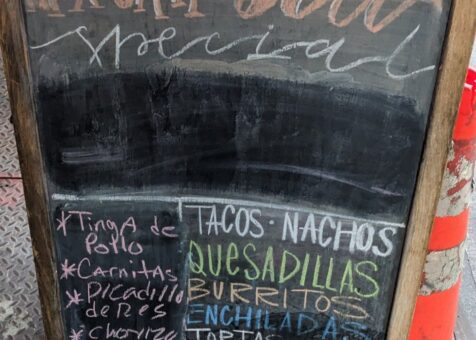 special
* Tinga de
Pollo
* Carnitas
* Picadillo
de Res
* Chorizo
TACOS · NACHOS
QUESADILLAS
BURRITOS
ENCHILADAS
TORTAS